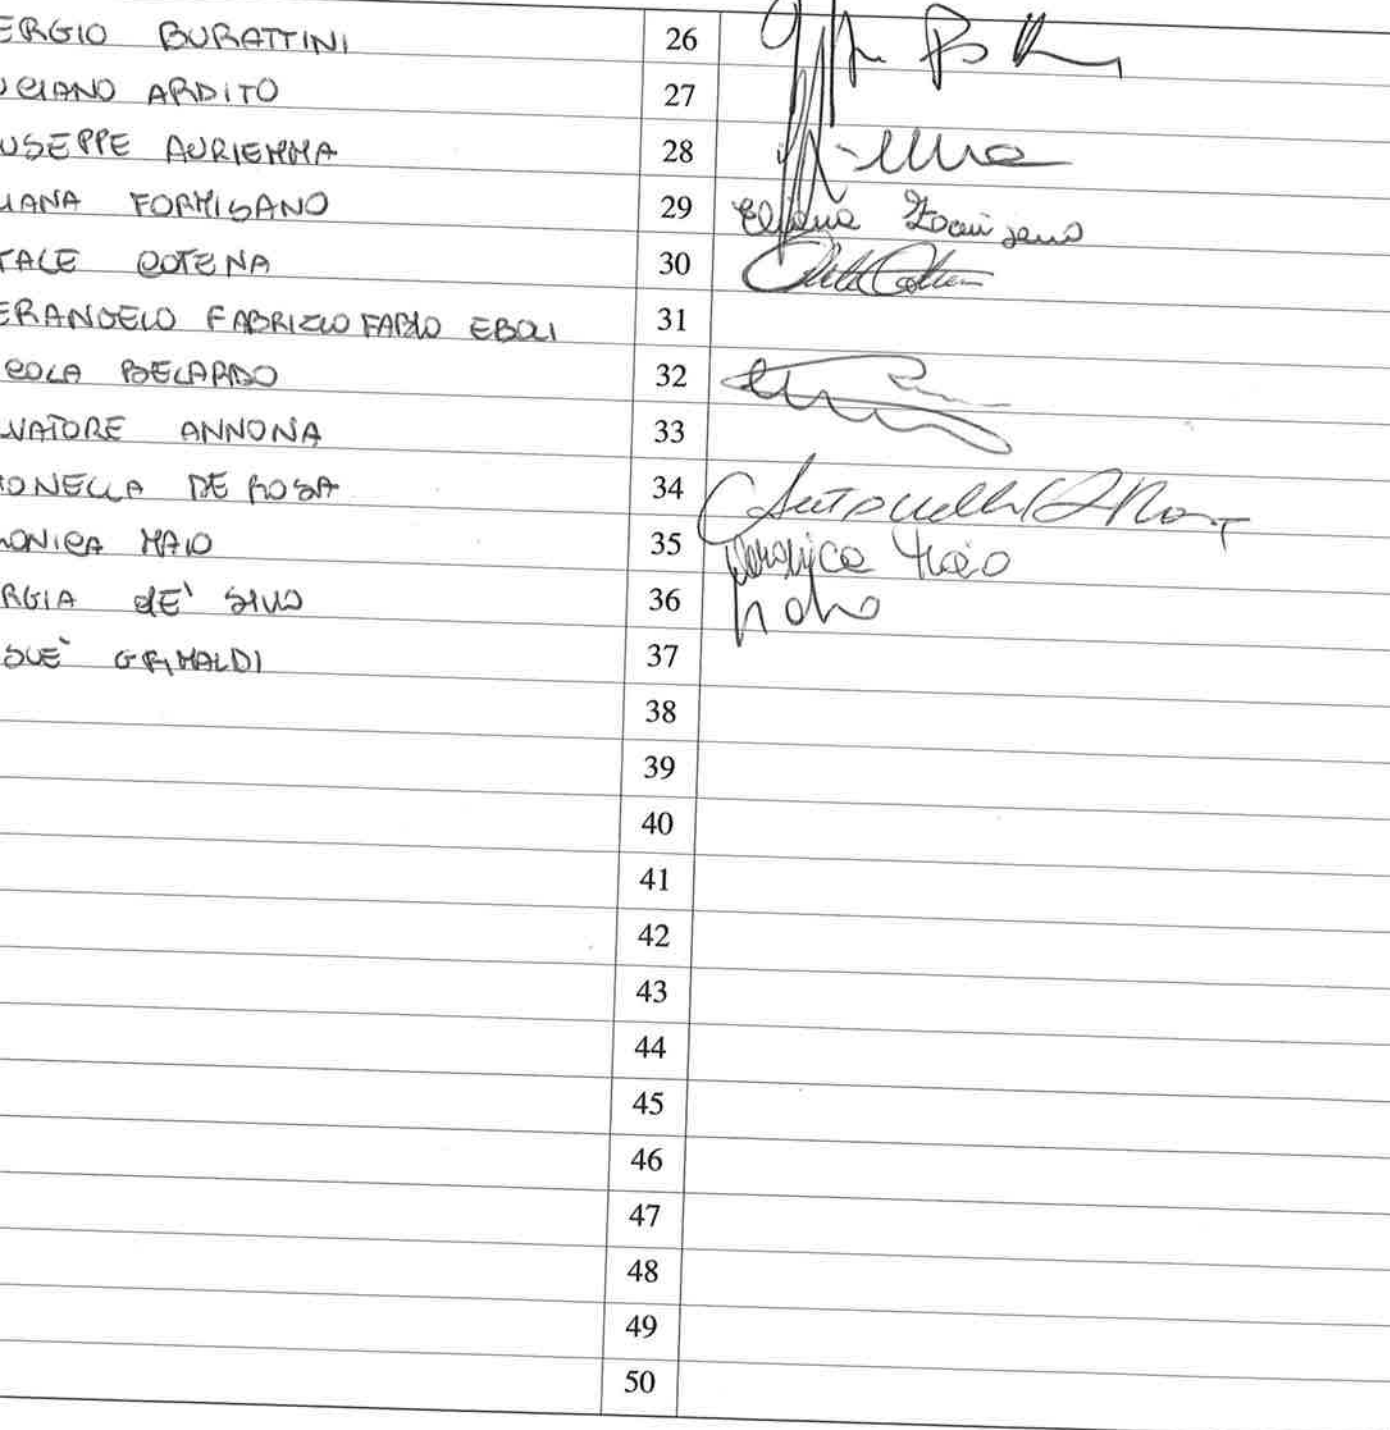 ERGIO BURATTINI 26
UCIANO ARDITO 27
USEPPE AURIEMMA 28
IANA FORMISANO 29 Eliana Formisano
TALE COTENA 30
ERANGELO FABRIZIO FABIO EBOLI 31
COLA BELARDO 32
VATORE ANNONA 33
ONELLA DE ROSA 34 Antonella De Rosa
RONICA MAIO 35 Veronica Maio
RGIA DE' SIVO 36
SUÈ GRIMALDI 37
38
39
40
41
42
43
44
45
46
47
48
49
50